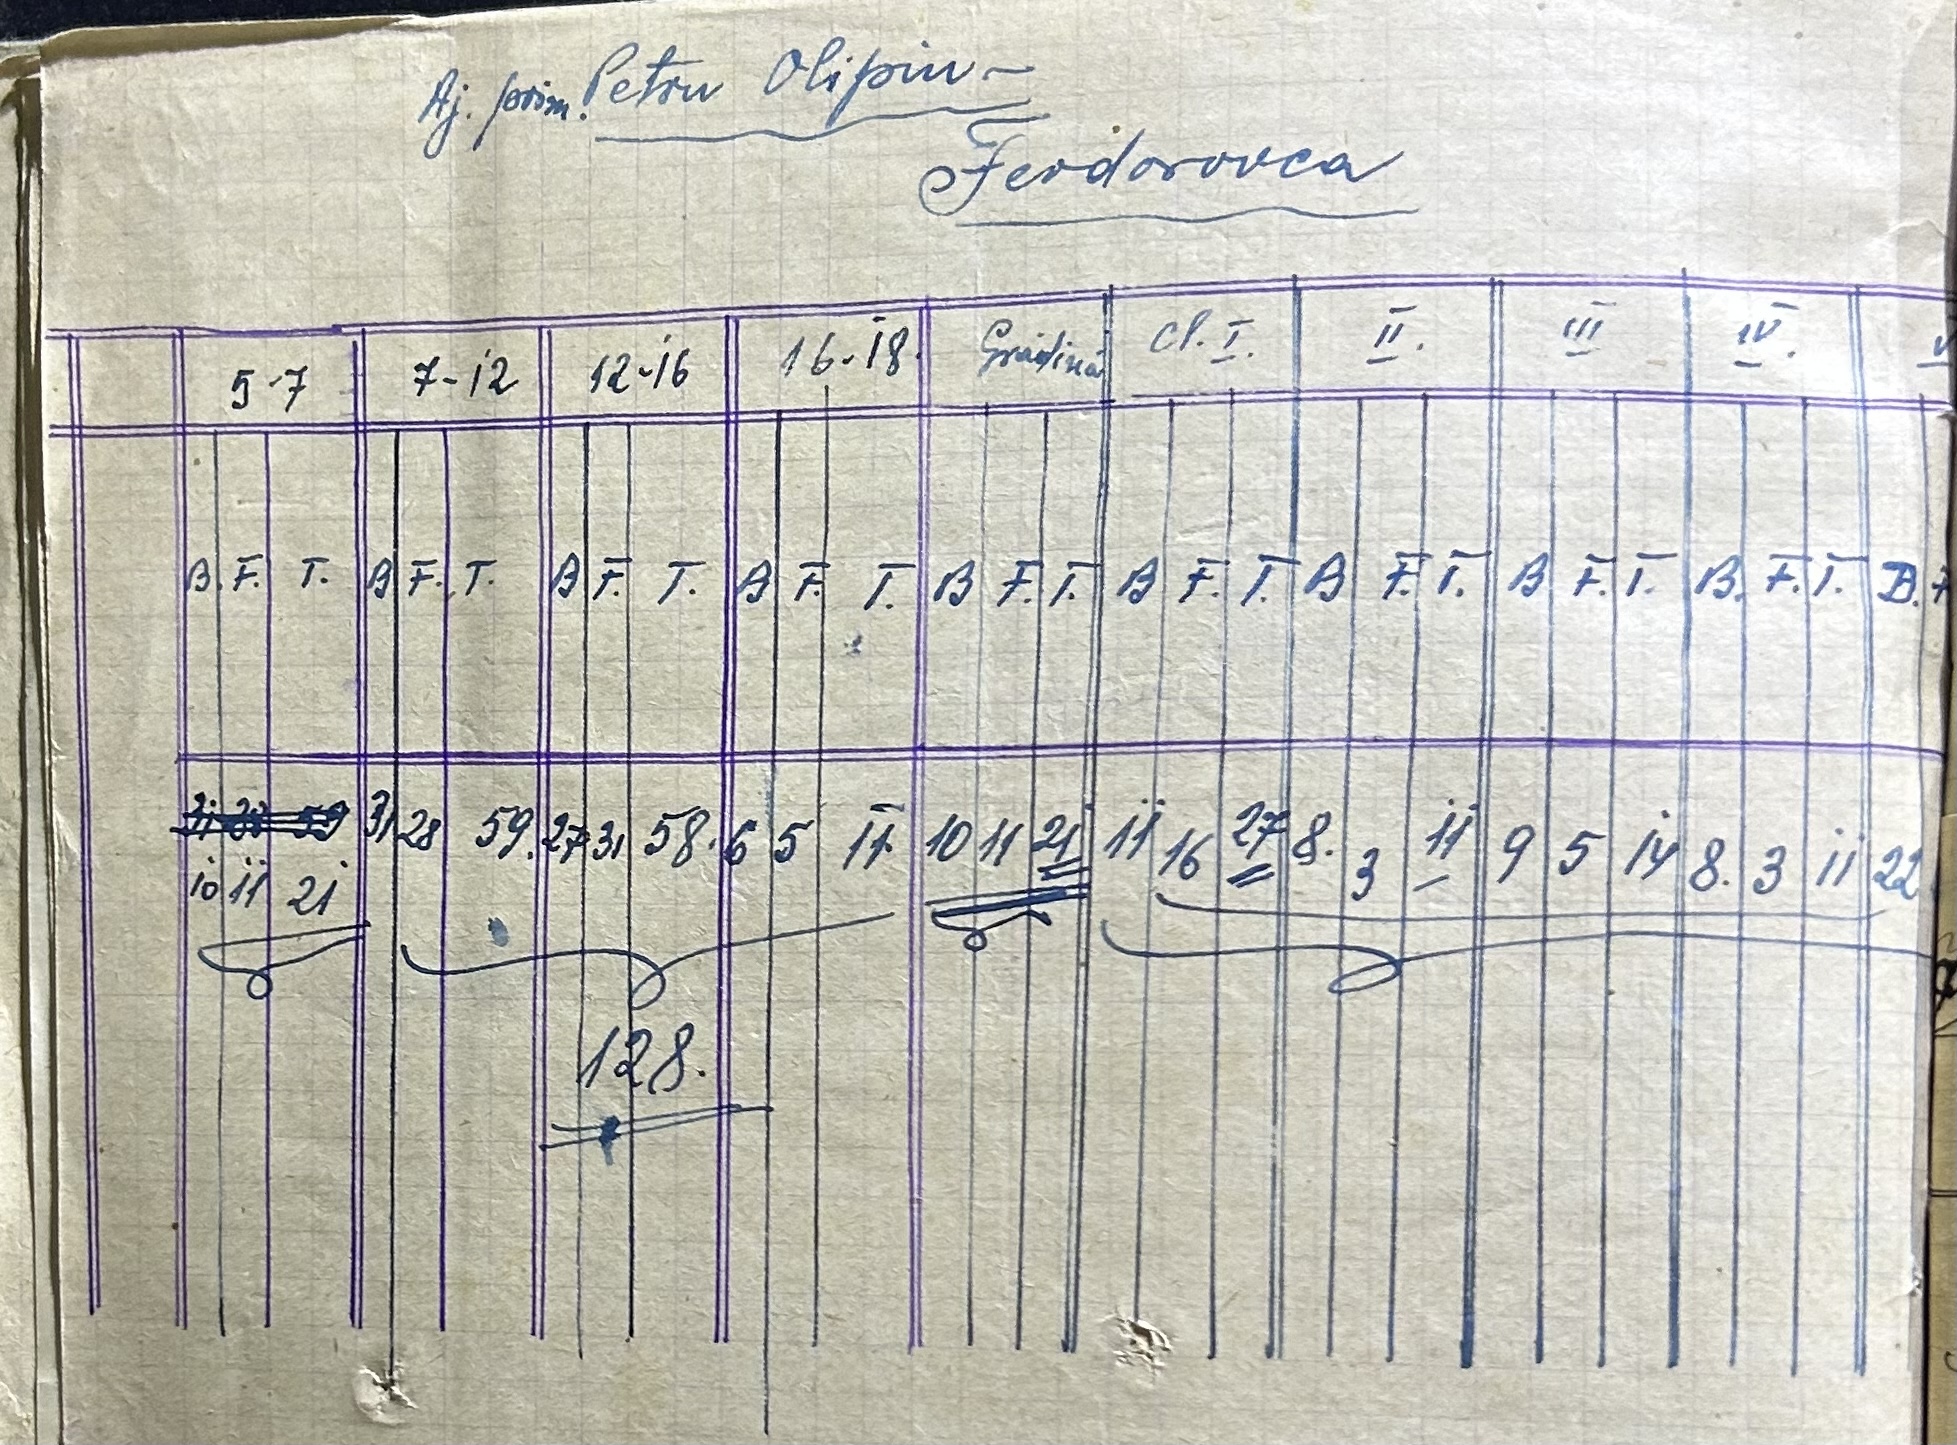 Aj. prim. Petru Olipiu
Feodorovca
5-7 7-12 12-16 16-18. Grădină Cl. I. II. III IV. V
B. F. T. B F. T. B F. T. B F. T. B F. T. B F. T. B F. T. B F. T. B. F. T. B. F
31 28 59 31 28 59. 27 31 58. 6 5 11 10 11 21 11 16 27 8. 3 11 9 5 14 8. 3 11 22
10 11 21
128.